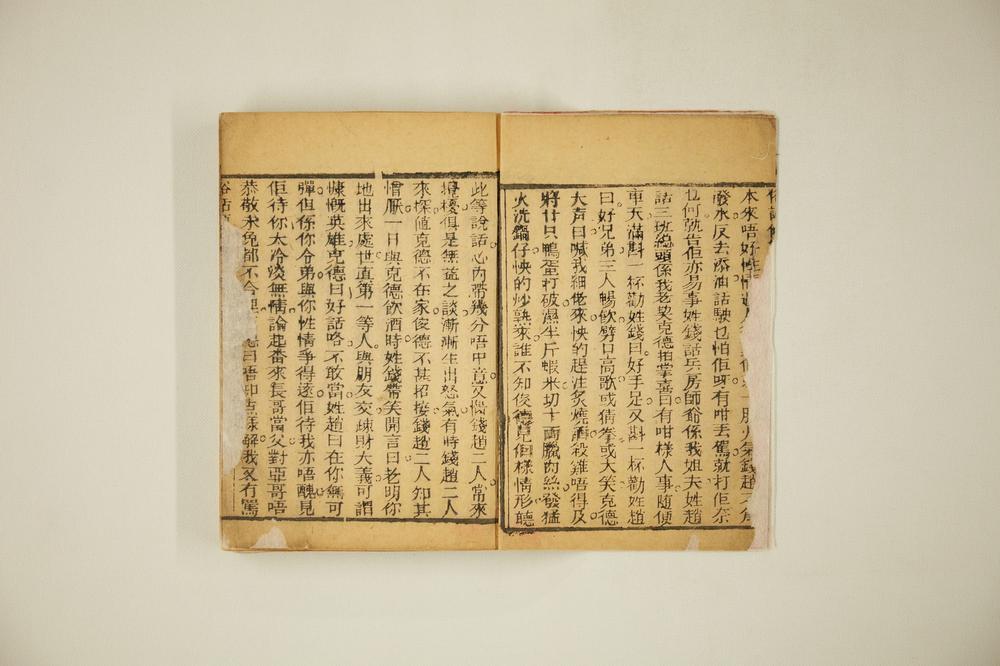 本來唔好性情
發水反去添油話駛乜怕佢呀有咁丟駕就打佢奈
乜何就告佢亦易事姓錢話兵房師爺係我姐夫姓趙
話三班總頭係我老契克德拍掌喜曰有咁樣人事隨便
車天滿斟一杯勸姓錢曰好手足又斟一杯勸姓趙
曰好兄弟三人暢飲劈口高歌或猜拳或大笑克德
大声曰喊我細佬來快的趕注炙燒酒殺雞唔得及
將廿只鴨蛋打破濕半斤蝦米切十両臘肉絲發猛
火洗鍋仔快的炒熟來誰不知俊德見個樣情形聽
此等說話心內帶幾分唔中意又惱錢趙二人常來
擾俱是無益之談漸漸生出怒氣有時錢趙二人
來探值克德不在家俊德不甚招接錢趙二人知其
憎厭一日與克德飲酒時姓錢帶笑開言曰老明你
地出來處世直第一等人與朋友交疎財大義可謂
慷慨英雄克德曰好話咯不敢當姓趙曰在你無可
彈但係你令弟與你性情爭得遠佢待我亦唔醜見
佢待你太冷淡無情論起番來長哥當父對亞哥唔
恭敬未免都不合理
曰唔
解我又有罵
俗話